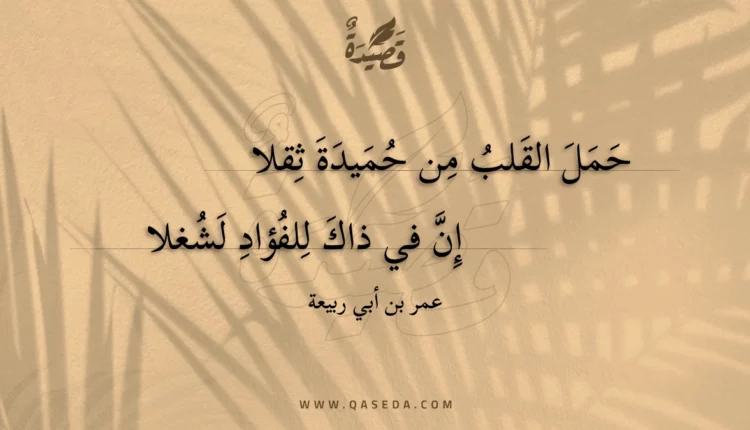 قَصِيْدَةٌ
حَمَلَ القَلبُ مِن حُمَيدَةَ ثِقلا
إِنَّ في ذاكَ لِلفُؤادِ لَشُغلا
عمر بن أبي ربيعة
WWW.QASEDA.COM